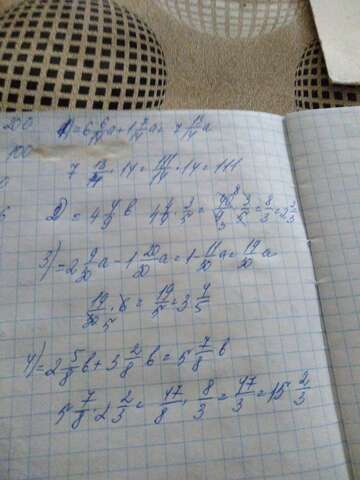 200
1) = 6 6/14 a + 1 7/14 a = 7 13/14 a
100
7 13/14 · 14 = 111/14 · 14 = 111
2) = 4 4/9 b 4 4/9 · 3/5 = 40/9 · 3/5 = 8/3 = 2 2/3
3) = 2 9/20 a - 1 20/20 a = 1 - 11/20 a = 19/20 a
19/20 · 6 = 19/5 = 3 4/5
4) = 2 5/8 b + 3 2/8 b = 5 7/8 b
5 7/8 · 2 2/3 = 47/8 · 8/3 = 47/3 = 15 2/3